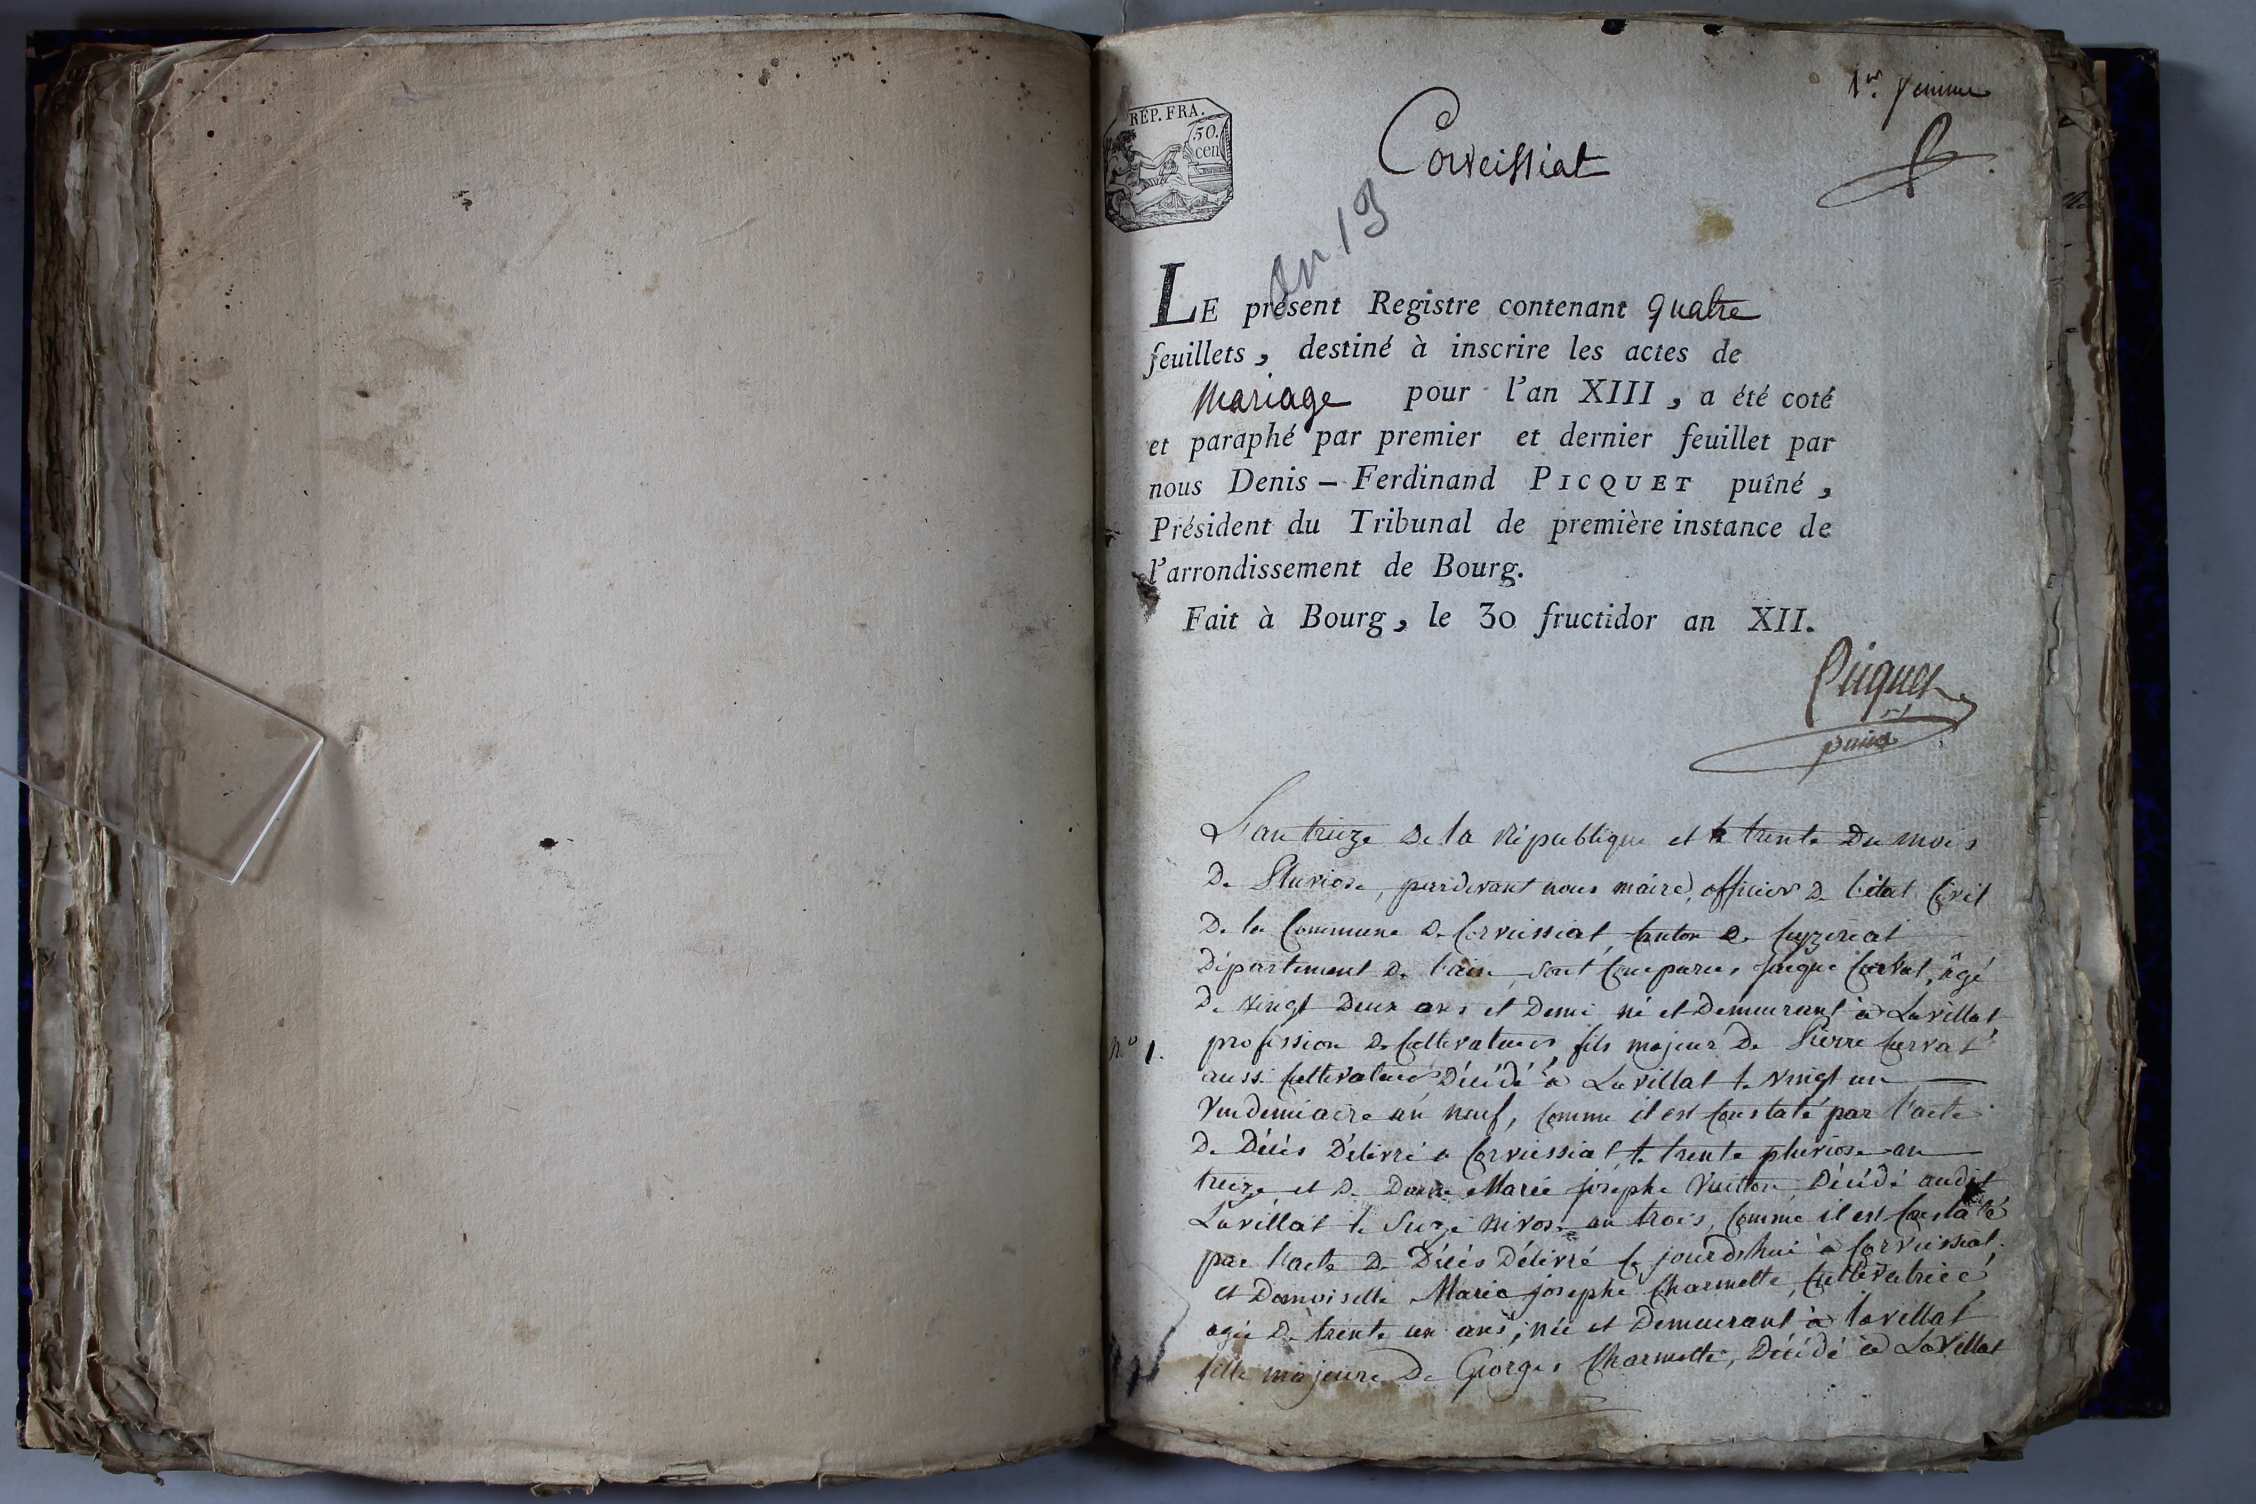 1er. feuillet
RÉP. FRA.
50.
cen
Corveissiat
an 13
LE présent Registre contenant quatre
feuillets, destiné à inscrire les actes de
Mariage pour l'an XIII, a été coté
et paraphé par premier et dernier feuillet par
nous Denis-Ferdinand PICQUET puîné,
Président du Tribunal de première instance de
l'arrondissement de Bourg.
Fait à Bourg, le 30 fructidor an XII.
Picquet
puiné
L'an treize de la république et le trente du mois
de Pluviose, pardevant nous maire, officier de l'état Civil
De la Commune de Corveissiat, Canton de Ceyzeriat
Département de l'ain, sont Comparus, jacque Curvat, âgé
De vingt deux ans et Demi né et Demeurant à Lavillat
N° 1.
profession de Cultivateur, fils majeur de Pierre Curvat
aussi Cultivateur Décédé à Lavillat le vingt un
Vendemiaire an neuf, Comme il est Constaté par l'acte
De Décès Délivré a Corveissiat le trente pluviose an
treize et De Dame Marie josephe Vuitton Décédé audit
Lavillat le Seize nivose an trois, Comme il est Constaté
par l'acte De Décès Délivré Ce jourd'hui à Corveissiat,
et Demoiselle Marie josephe Charmette, Cultivatrice
agée De trente un ans, née et Demeurant à lavillat
fille majeure De Georges Charmette, Décédé à LaVillat